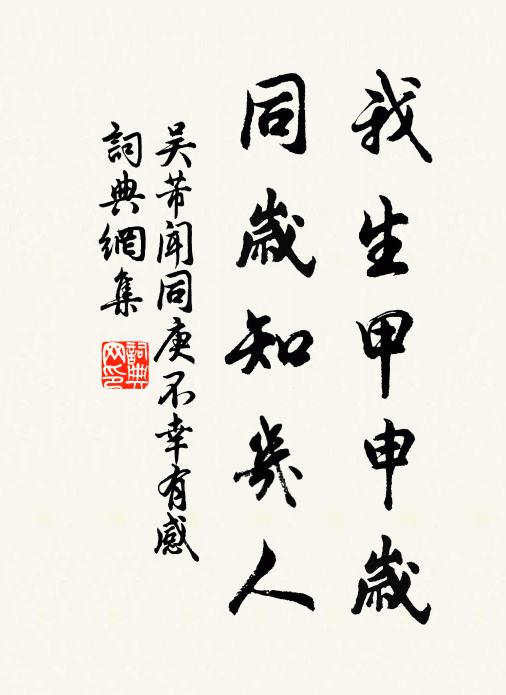 我生甲申歲
同歲知幾人
吳芾聞同庚不幸有感
詞典網集
詞典网印